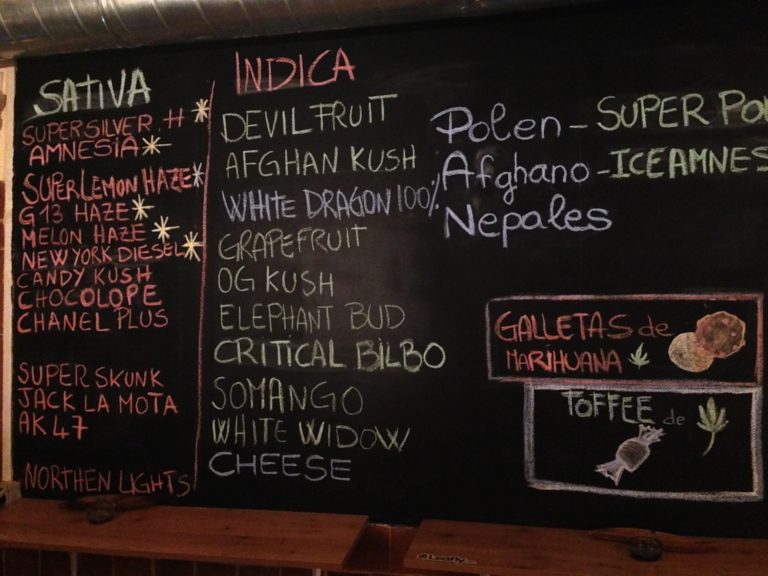 SATIVA
SUPERSILVER H
AMNESIA
SUPERLEMON HAZE
G13 HAZE
MELON HAZE
NEWYORK DIESEL
CANDY KUSH
CHOCOLOPE
CHANEL PLUS
SUPER SKUNK
JACK LA MOTA
AK 47
NORTHEN LIGHTS
INDICA
DEVIL FRUIT
AFGHAN KUSH
WHITE DRAGON 100%
GRAPEFRUIT
OG KUSH
ELEPHANT BUD
CRITICAL BILBO
SOMANGO
WHITE WIDOW
CHEESE
Polen - SUPER
Afghano - ICEAMNES
Nepales
GALLETAS de
MARIHUANA
TOFFEE de
Leafly